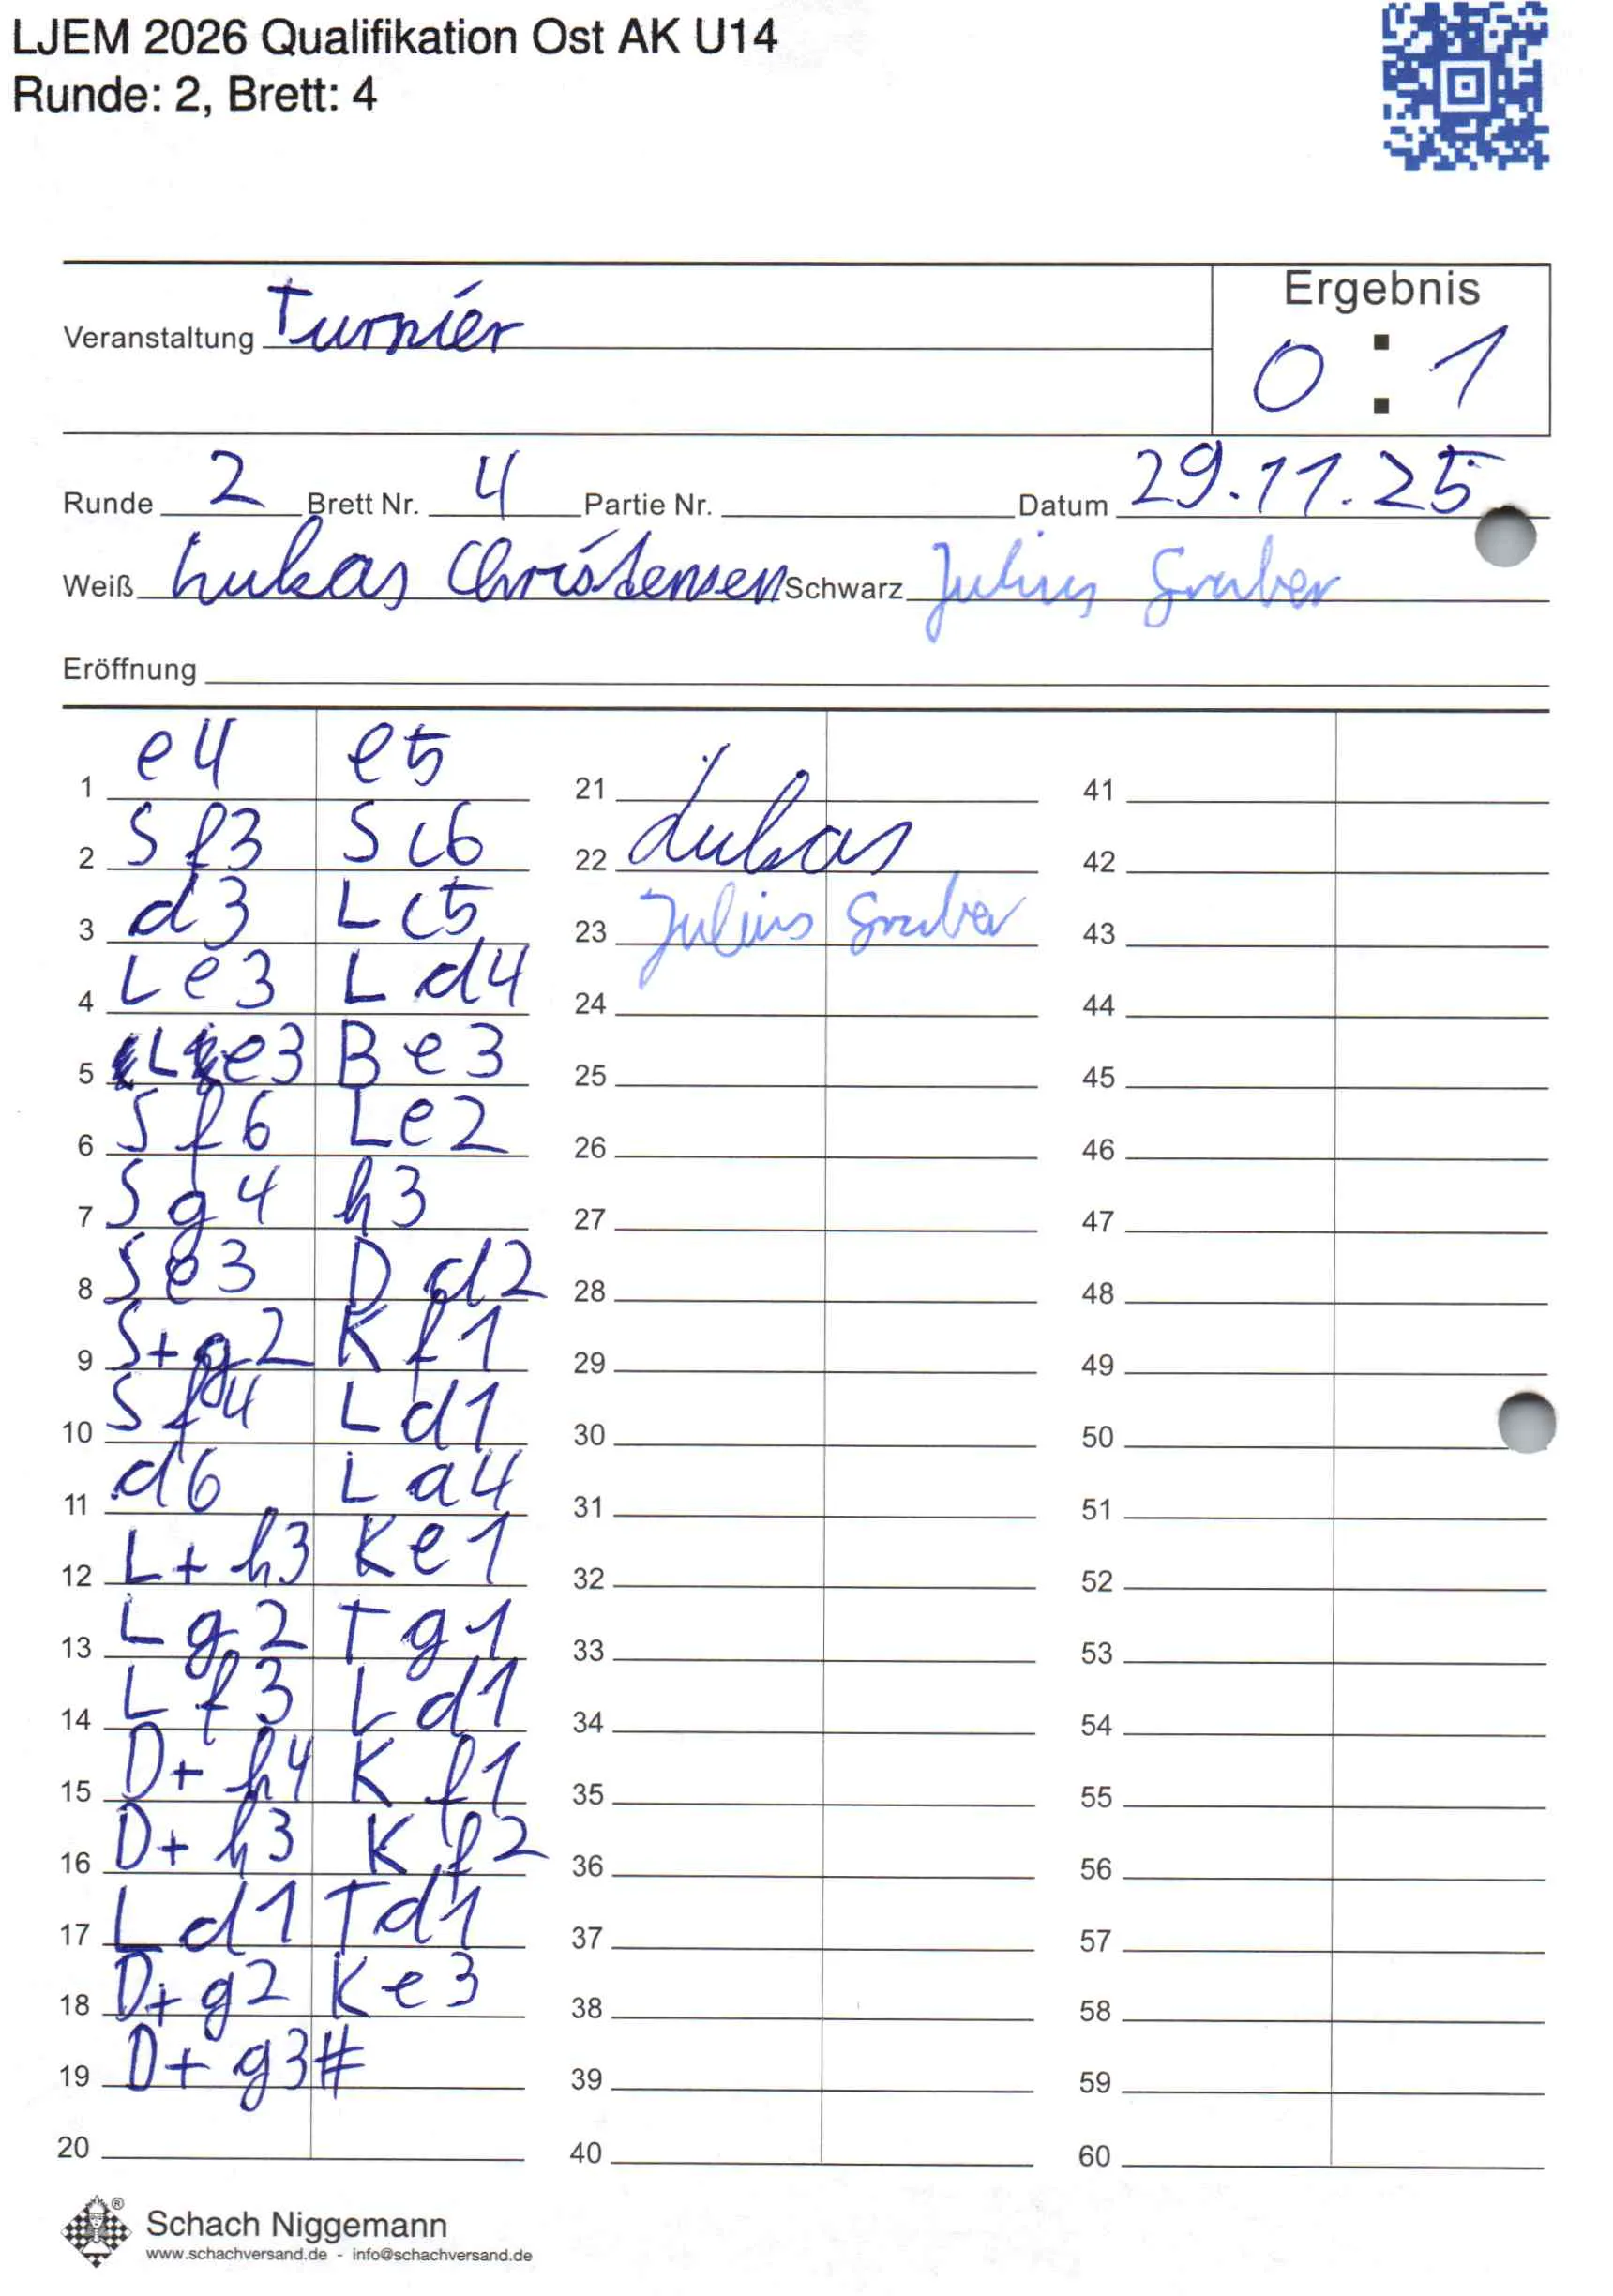 LJEM 2026 Qualifikation Ost AK U14
Runde: 2, Brett: 4
Ergebnis
Veranstaltung Turnier
0 : 1
Runde 2 Brett Nr. 4 Partie Nr. Datum 29.11.25
Weiß Lukas Christensen Schwarz Julius Gruber
Eröffnung
1 e4 e5 21 41
2 Sf3 Sc6 22 Lukas 42
3 d3 Lc5 23 Julius Gruber 43
4 Le3 Ld4 24 44
5 Le3 Be3 25 45
6 Sf6 Le2 26 46
7 Sg4 h3 27 47
8 Se3 Dd2 28 48
9 S+g2 Kf1 29 49
10 Sf4 Ld1 30 50
11 d6 La4 31 51
12 L+h3 Ke1 32 52
13 Lg2 Tg1 33 53
14 Lf3 Ld1 34 54
15 D+h4 Kf1 35 55
16 D+h3 Kf2 36 56
17 Ld1 Td1 37 57
18 D+g2 Ke3 38 58
19 D+g3# 39 59
20 40 60
Schach Niggemann
www.schachversand.de - info@schachversand.de